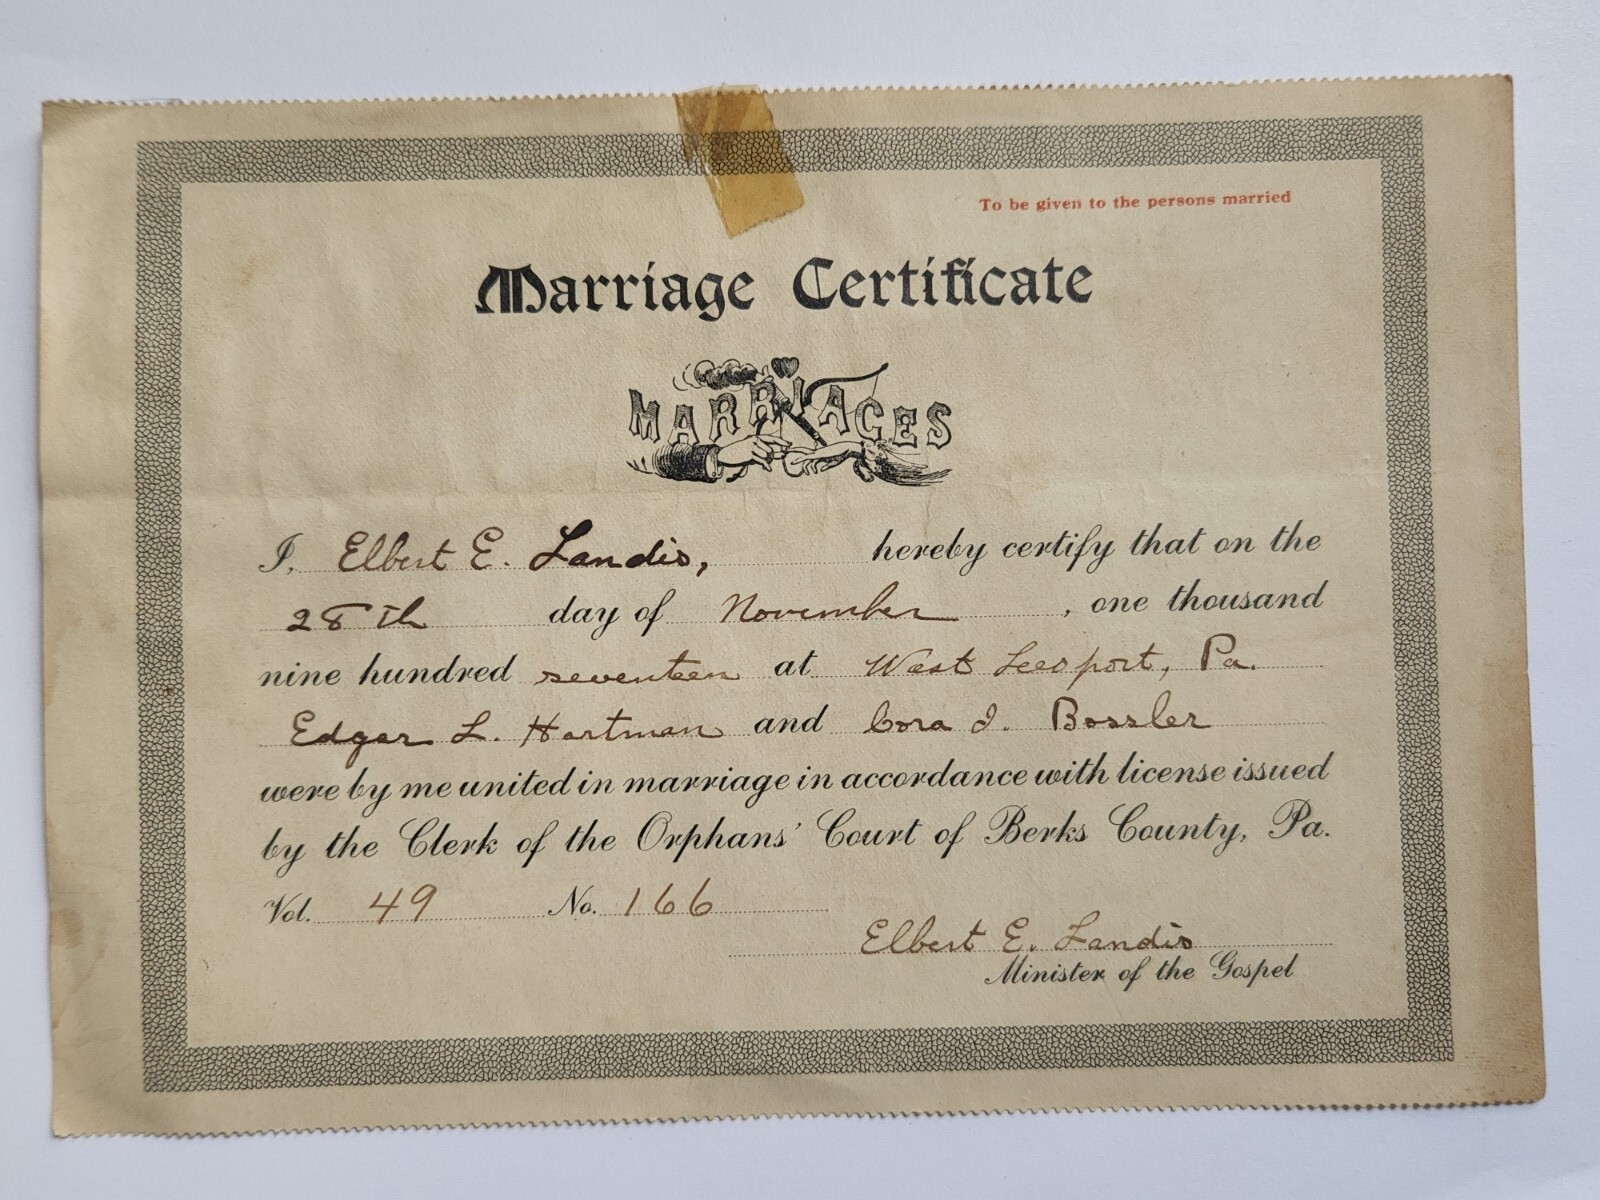 To be given to the persons married
Marriage Certificate
MARRIAGES
I, Elbert E. Landis, hereby certify that on the
28th day of November, one thousand
nine hundred seventeen at West Leesport, Pa.
Edgar L. Hartman and Cora I. Bossler
were by me united in marriage in accordance with license issued
by the Clerk of the Orphans' Court of Berks County, Pa.
Vol. 49 No. 166
Elbert E. Landis
Minister of the Gospel